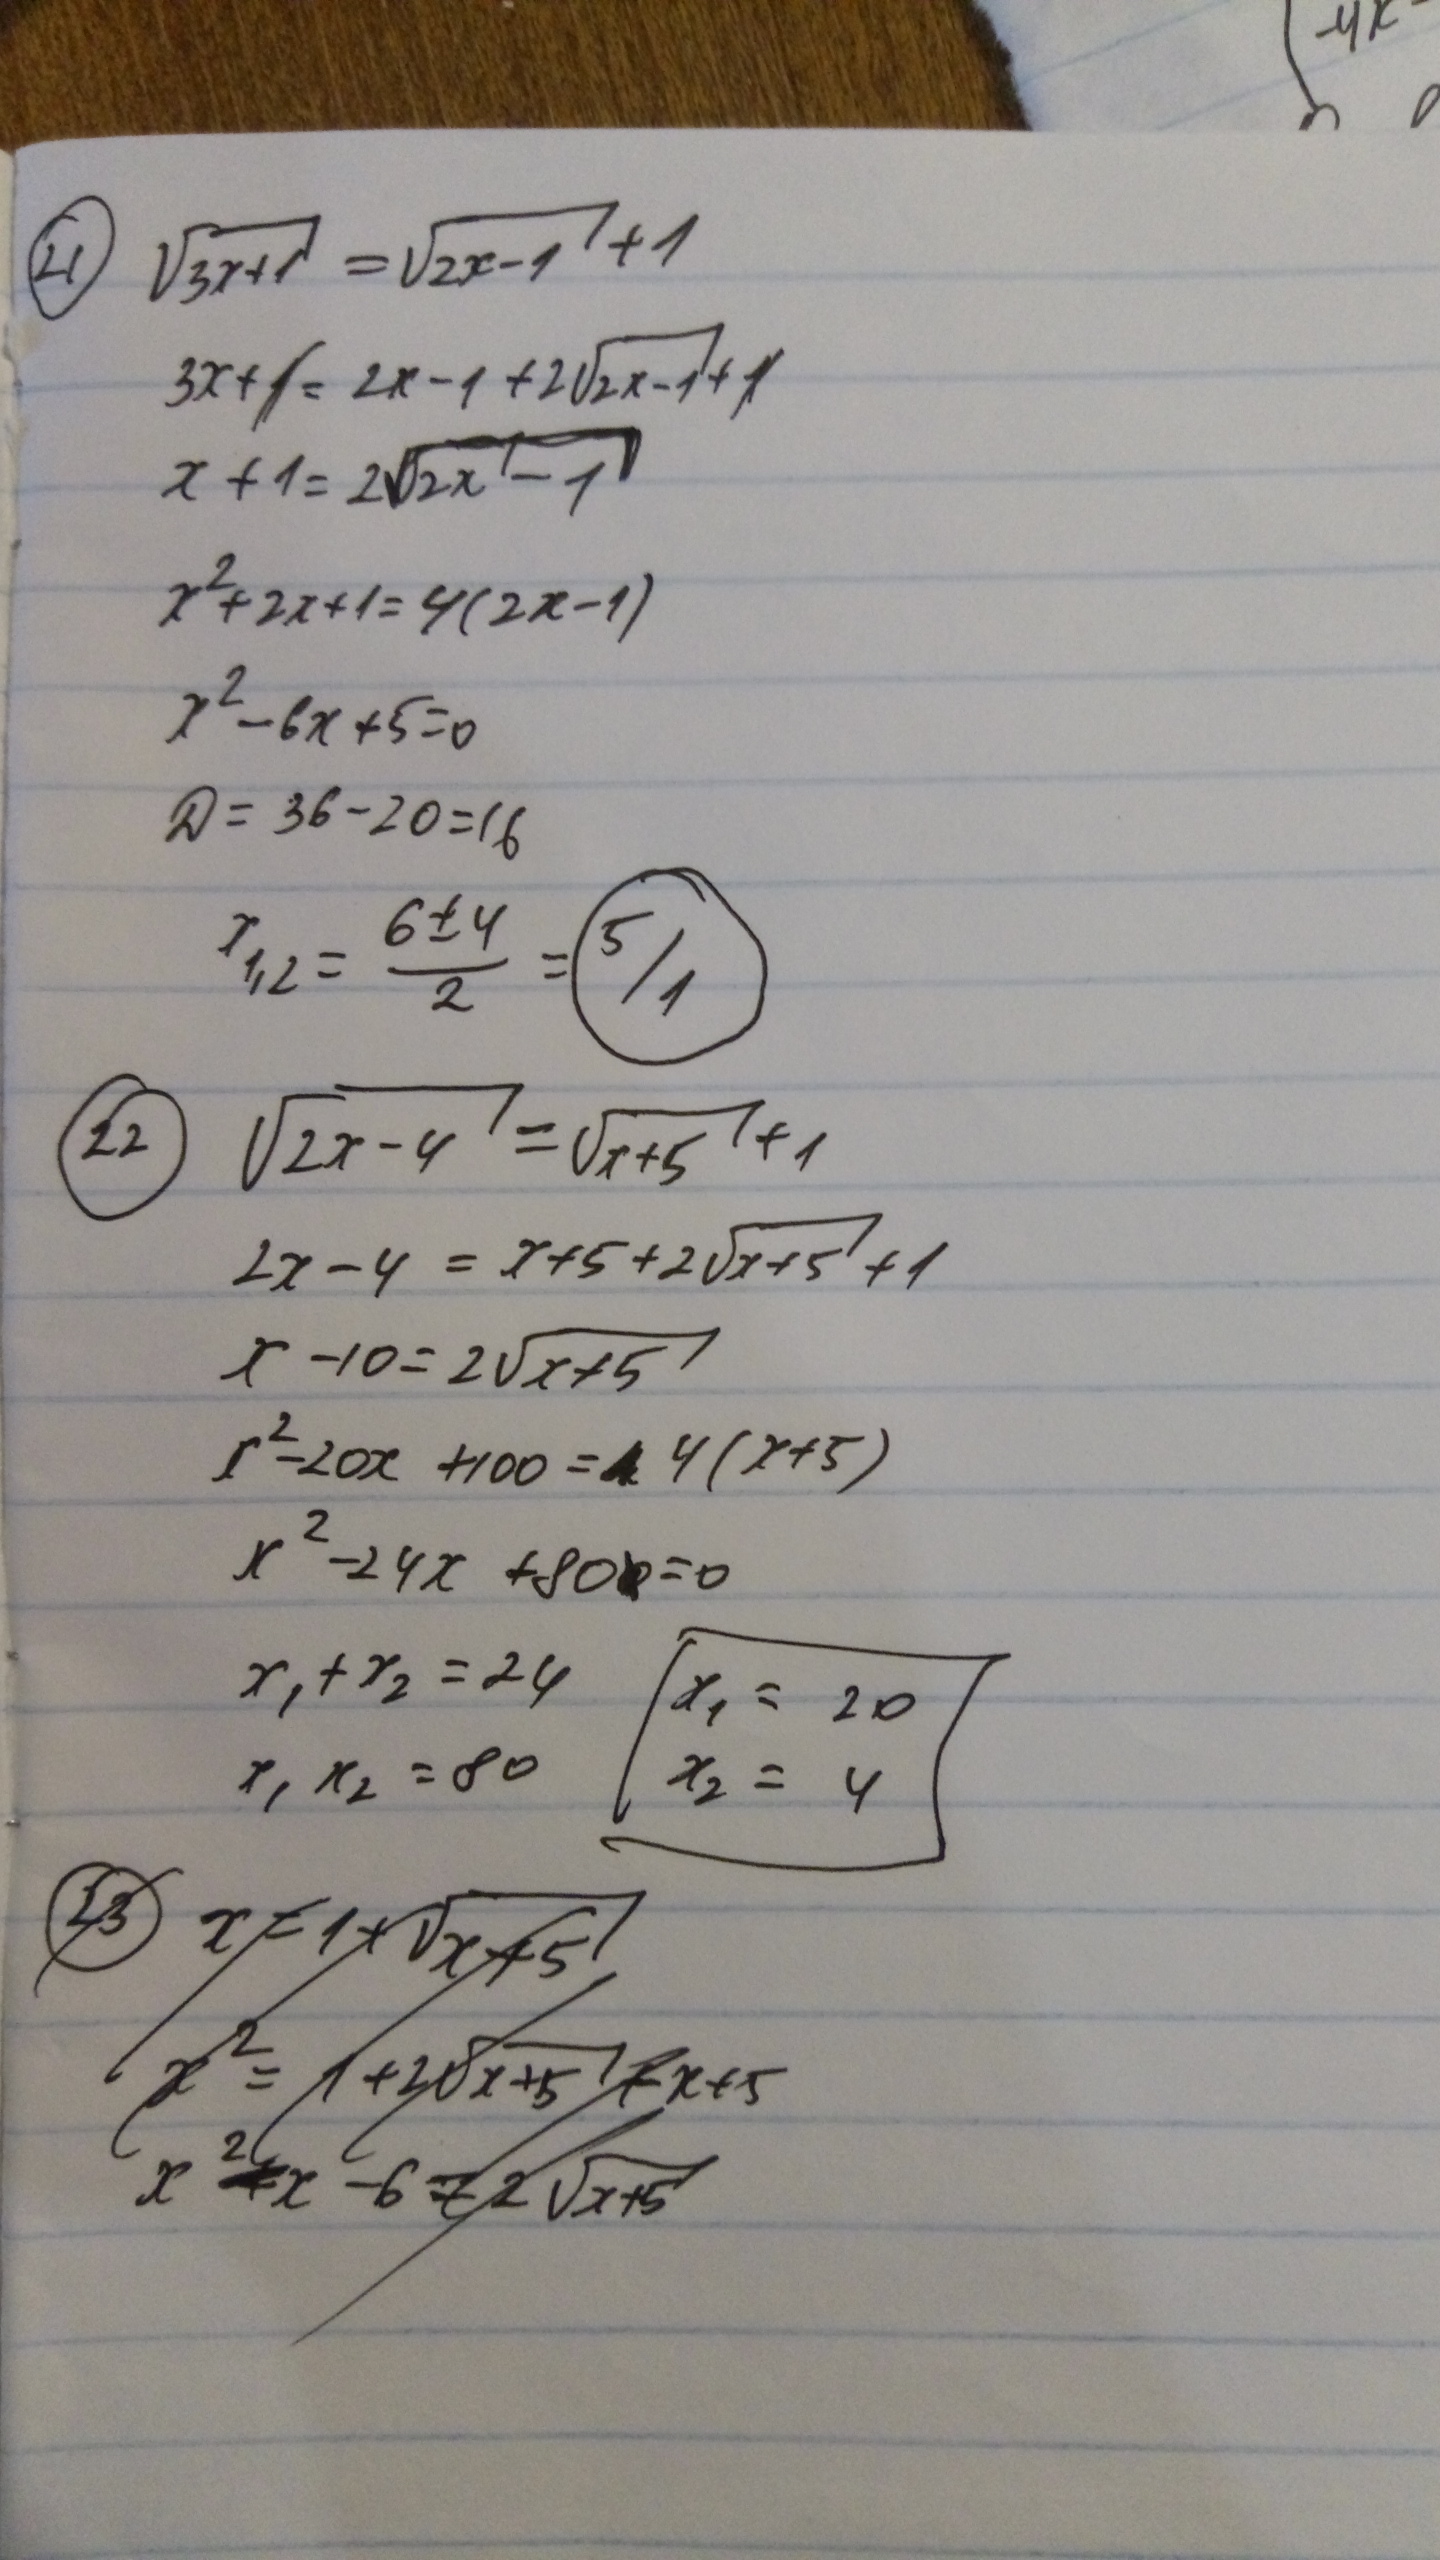 -4x
21 √3x+1 = √2x-1 + 1
3x+1 = 2x-1 + 2√2x-1 + 1
x+1 = 2√2x-1
x²+2x+1 = 4(2x-1)
x²-6x+5=0
D = 36-20=16
x1,2 = 6±4/2 = 5/1
22 √2x-4 = √x+5 + 1
2x-4 = x+5+2√x+5 + 1
x-10 = 2√x+5
x²-20x +100 = 4(x+5)
x²-24x +80=0
x1+x2 = 24
x1 x2 = 80
x1 = 20
x2 = 4
23 x = 1+√x+5
x² = 1+2√x+5 + x+5
x²-x-6 = 2√x+5